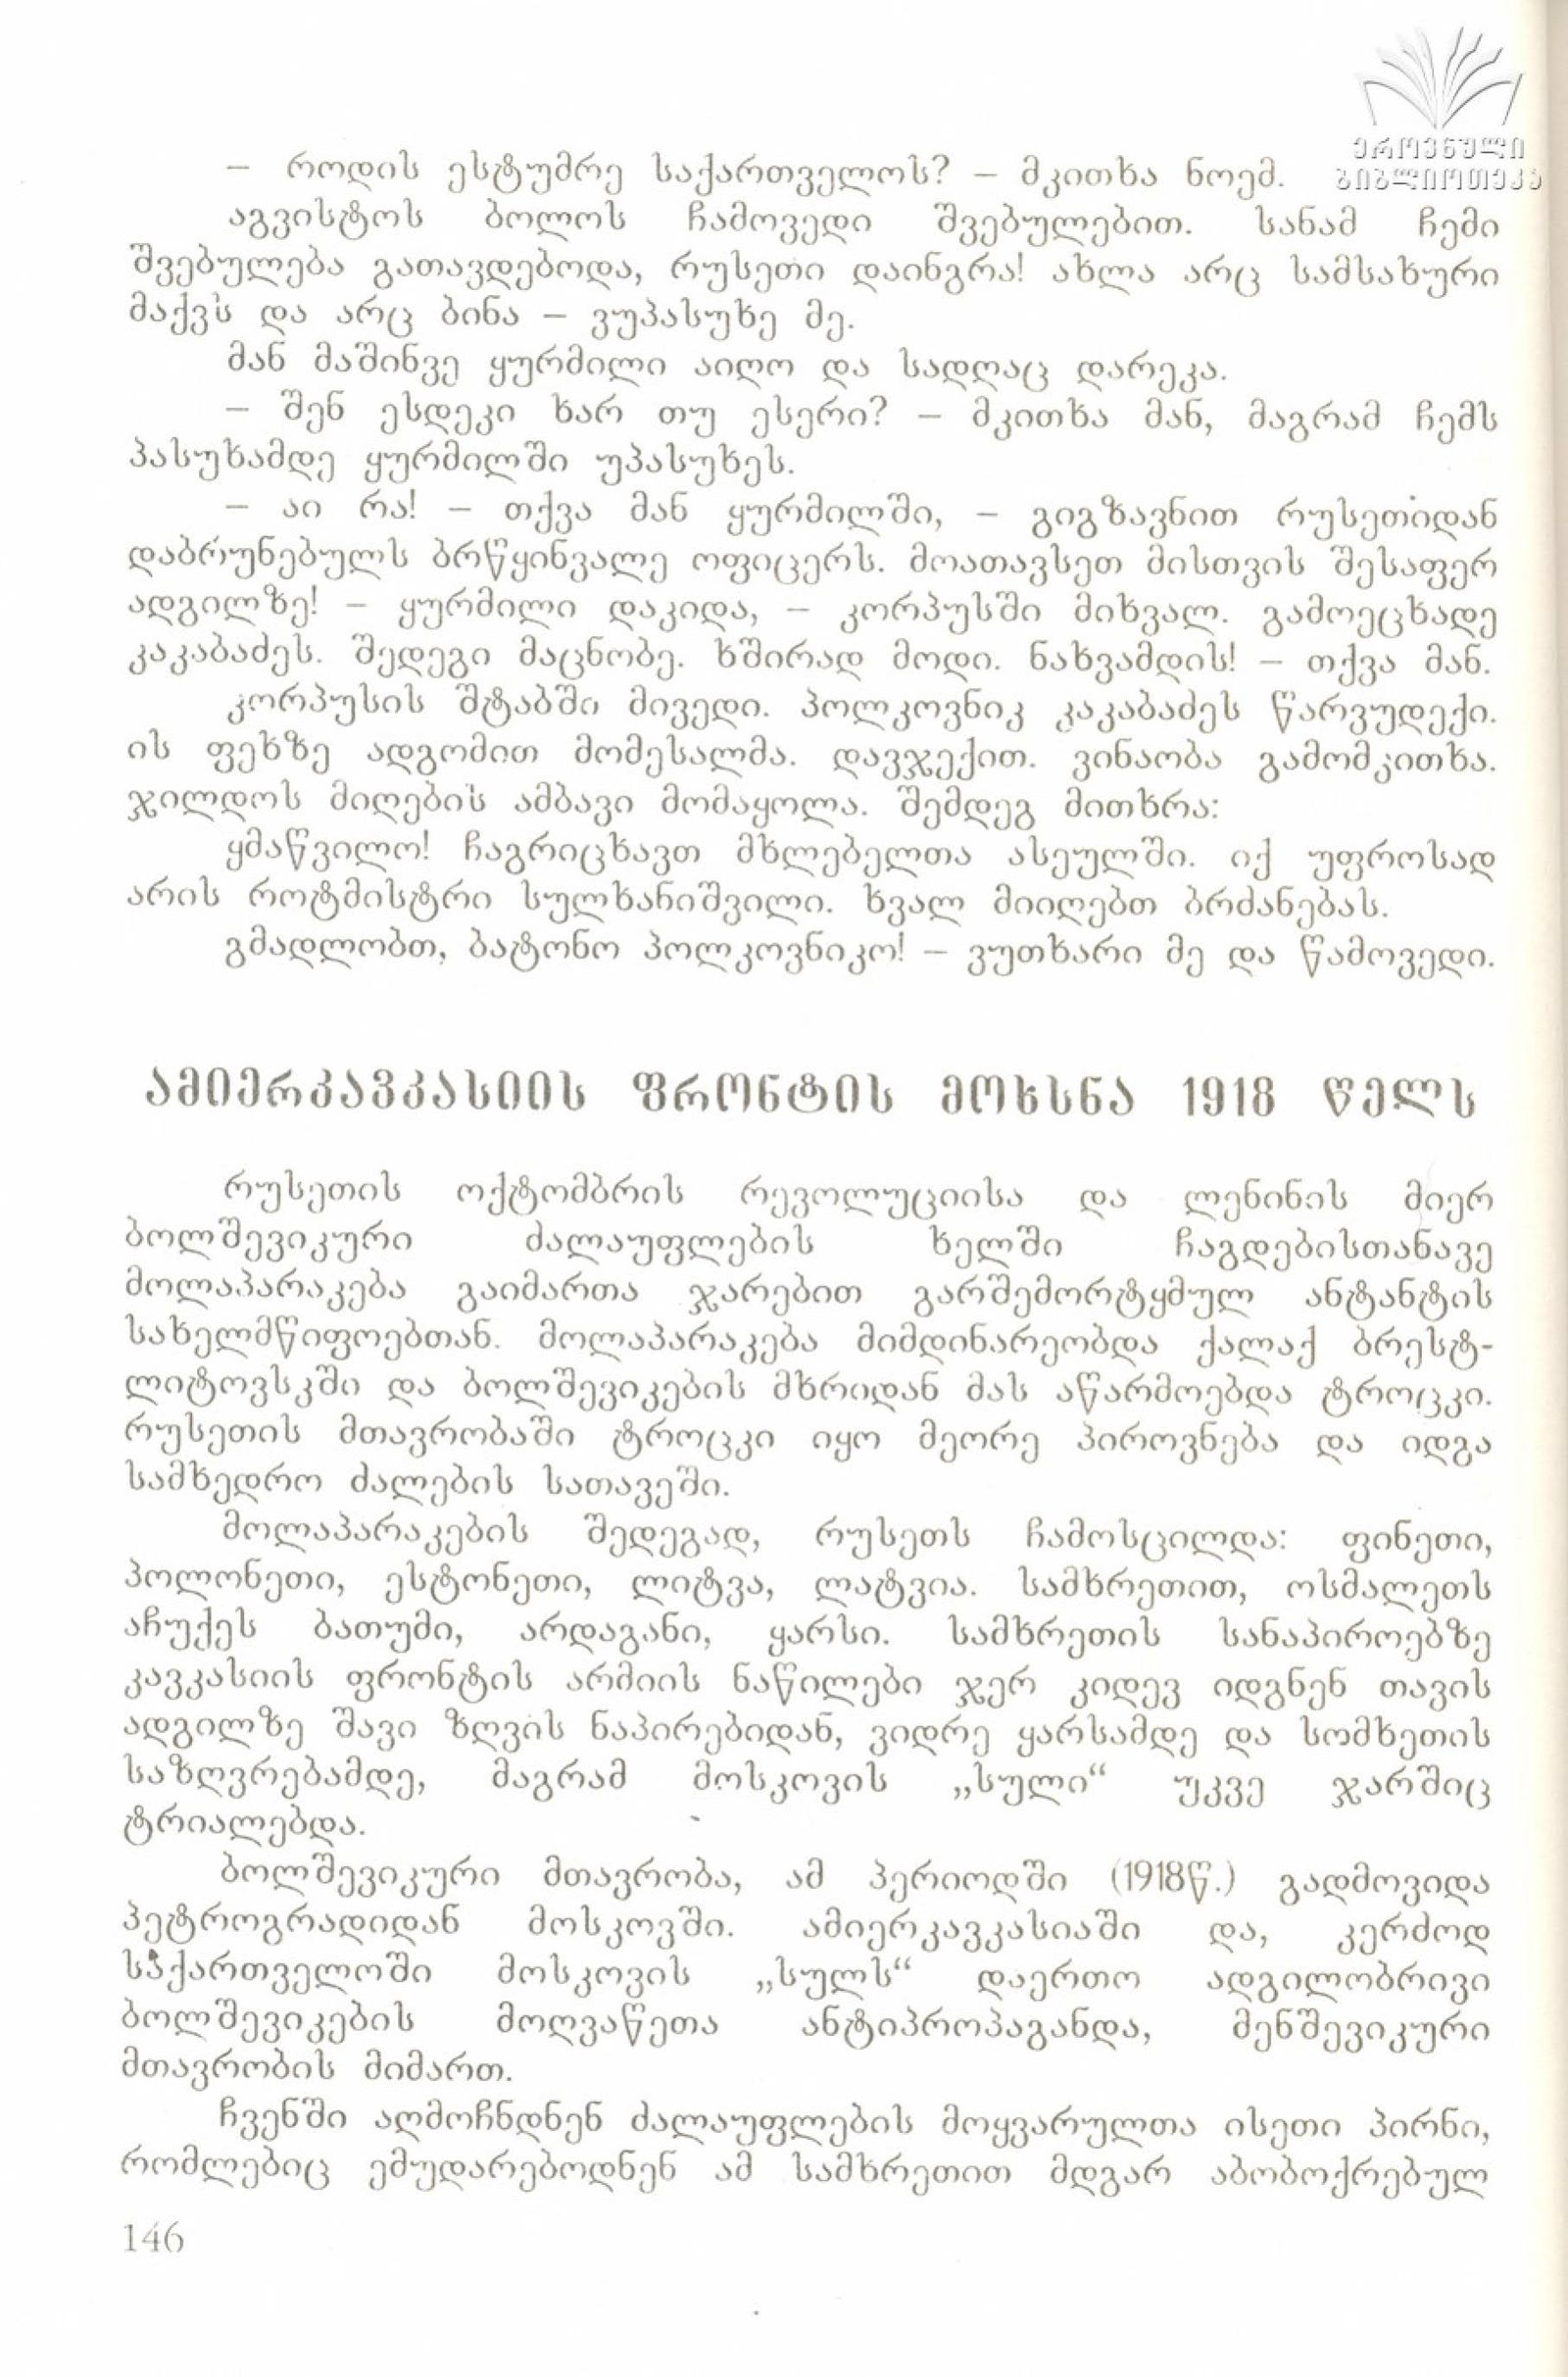 ეროვნული
ბიბლიოთეკა
– როდის ესტუმრე საქართველოს? – მკითხა ნოემ.
აგვისტოს ბოლოს ჩამოვედი შვებულებით. სანამ ჩემი
შვებულება გათავდებოდა, რუსეთი დაინგრა! ახლა არც სამსახური
მაქვს და არც ბინა – ვუპასუხე მე.
მან მაშინვე ყურმილი აიღო და სადღაც დარეკა.
– შენ ესდეკი ხარ თუ ესერი? – მკითხა მან, მაგრამ ჩემს
პასუხამდე ყურმილში უპასუხეს.
– აი რა! – თქვა მან ყურმილში, – გიგზავნით რუსეთიდან
დაბრუნებულს ბრწყინვალე ოფიცერს. მოათავსეთ მისთვის შესაფერ
ადგილზე! – ყურმილი დაკიდა, – კორპუსში მიხვალ. გამოეცხადე
კაკაბაძეს. შედეგი მაცნობე. ხშირად მოდი. ნახვამდის! – თქვა მან.
კორპუსის შტაბში მივედი. პოლკოვნიკ კაკაბაძეს წარვუდექი.
ის ფეხზე ადგომით მომესალმა. დავჯექით. ვინაობა გამომკითხა.
ჯილდოს მიღების ამბავი მომაყოლა. შემდეგ მითხრა:
ყმაწვილო! ჩაგრიცხავთ მხლებელთა ასეულში. იქ უფროსად
არის როტმისტრი სულხანიშვილი. ხვალ მიიღებთ ბრძანებას.
გმადლობთ, ბატონო პოლკოვნიკო! – ვუთხარი მე და წამოვედი.
ამიერკავკასიის ფრონტის მოხსნა 1918 წელს
რუსეთის ოქტომბრის რევოლუციისა და ლენინის მიერ
ბოლშევიკური ძალაუფლების ხელში ჩაგდებისთანავე
მოლაპარაკება გაიმართა ჯარებით გარშემორტყმულ ანტანტის
სახელმწიფოებთან. მოლაპარაკება მიმდინარეობდა ქალაქ ბრესტ-
ლიტოვსკში და ბოლშევიკების მხრიდან მას აწარმოებდა ტროცკი.
რუსეთის მთავრობაში ტროცკი იყო მეორე პიროვნება და იდგა
სამხედრო ძალების სათავეში.
მოლაპარაკების შედეგად, რუსეთს ჩამოსცილდა: ფინეთი,
პოლონეთი, ესტონეთი, ლიტვა, ლატვია. სამხრეთით, ოსმალეთს
აჩუქეს ბათუმი, არდაგანი, ყარსი. სამხრეთის სანაპიროებზე
კავკასიის ფრონტის არმიის ნაწილები ჯერ კიდევ იდგნენ თავის
ადგილზე შავი ზღვის ნაპირებიდან, ვიდრე ყარსამდე და სომხეთის
საზღვრებამდე, მაგრამ მოსკოვის „სული“ უკვე ჯარშიც
ტრიალებდა.
ბოლშევიკური მთავრობა, ამ პერიოდში (1918წ.) გადმოვიდა
პეტროგრადიდან მოსკოვში. ამიერკავკასიაში და, კერძოდ
საქართველოში მოსკოვის „სულს“ დაერთო ადგილობრივი
ბოლშევიკების მოღვაწეთა ანტიპროპაგანდა, მენშევიკური
მთავრობის მიმართ.
ჩვენში აღმოჩნდნენ ძალაუფლების მოყვარულთა ისეთი პირნი,
რომლებიც ემუდარებოდნენ ამ სამხრეთით მდგარ აბობოქრებულ
146